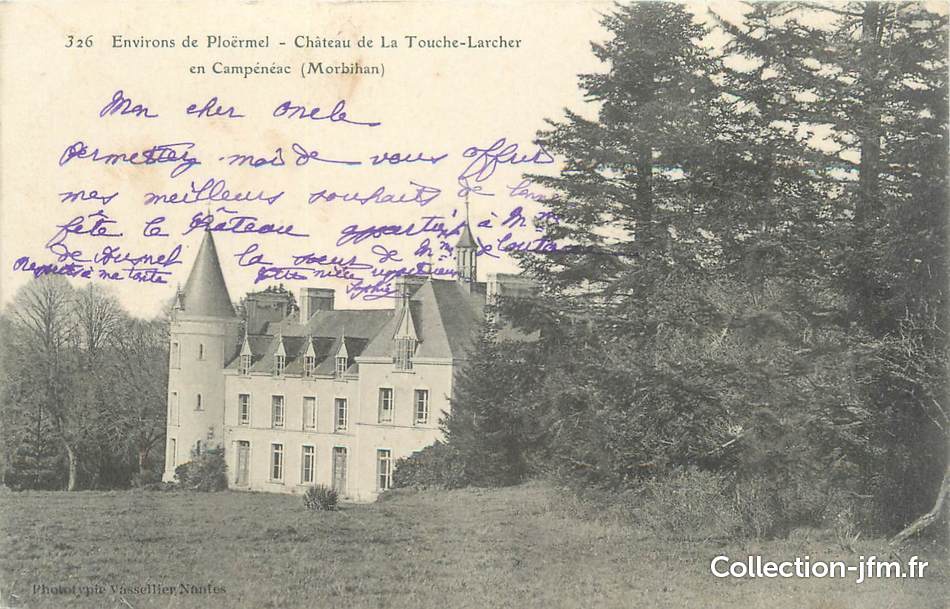 326 Environs de Ploërmel - Château de La Touche-Larcher
en Campénéac (Morbihan)
Mon cher oncle
Permettez moi de vous offrir
mes meilleurs souhaits de
fête le Château appartient à Mme
de la sœur de Mme de
Respects à ma tante
Votre nièce
Sophie
Phototypie Vassellier, Nantes
Collection-jfm.fr